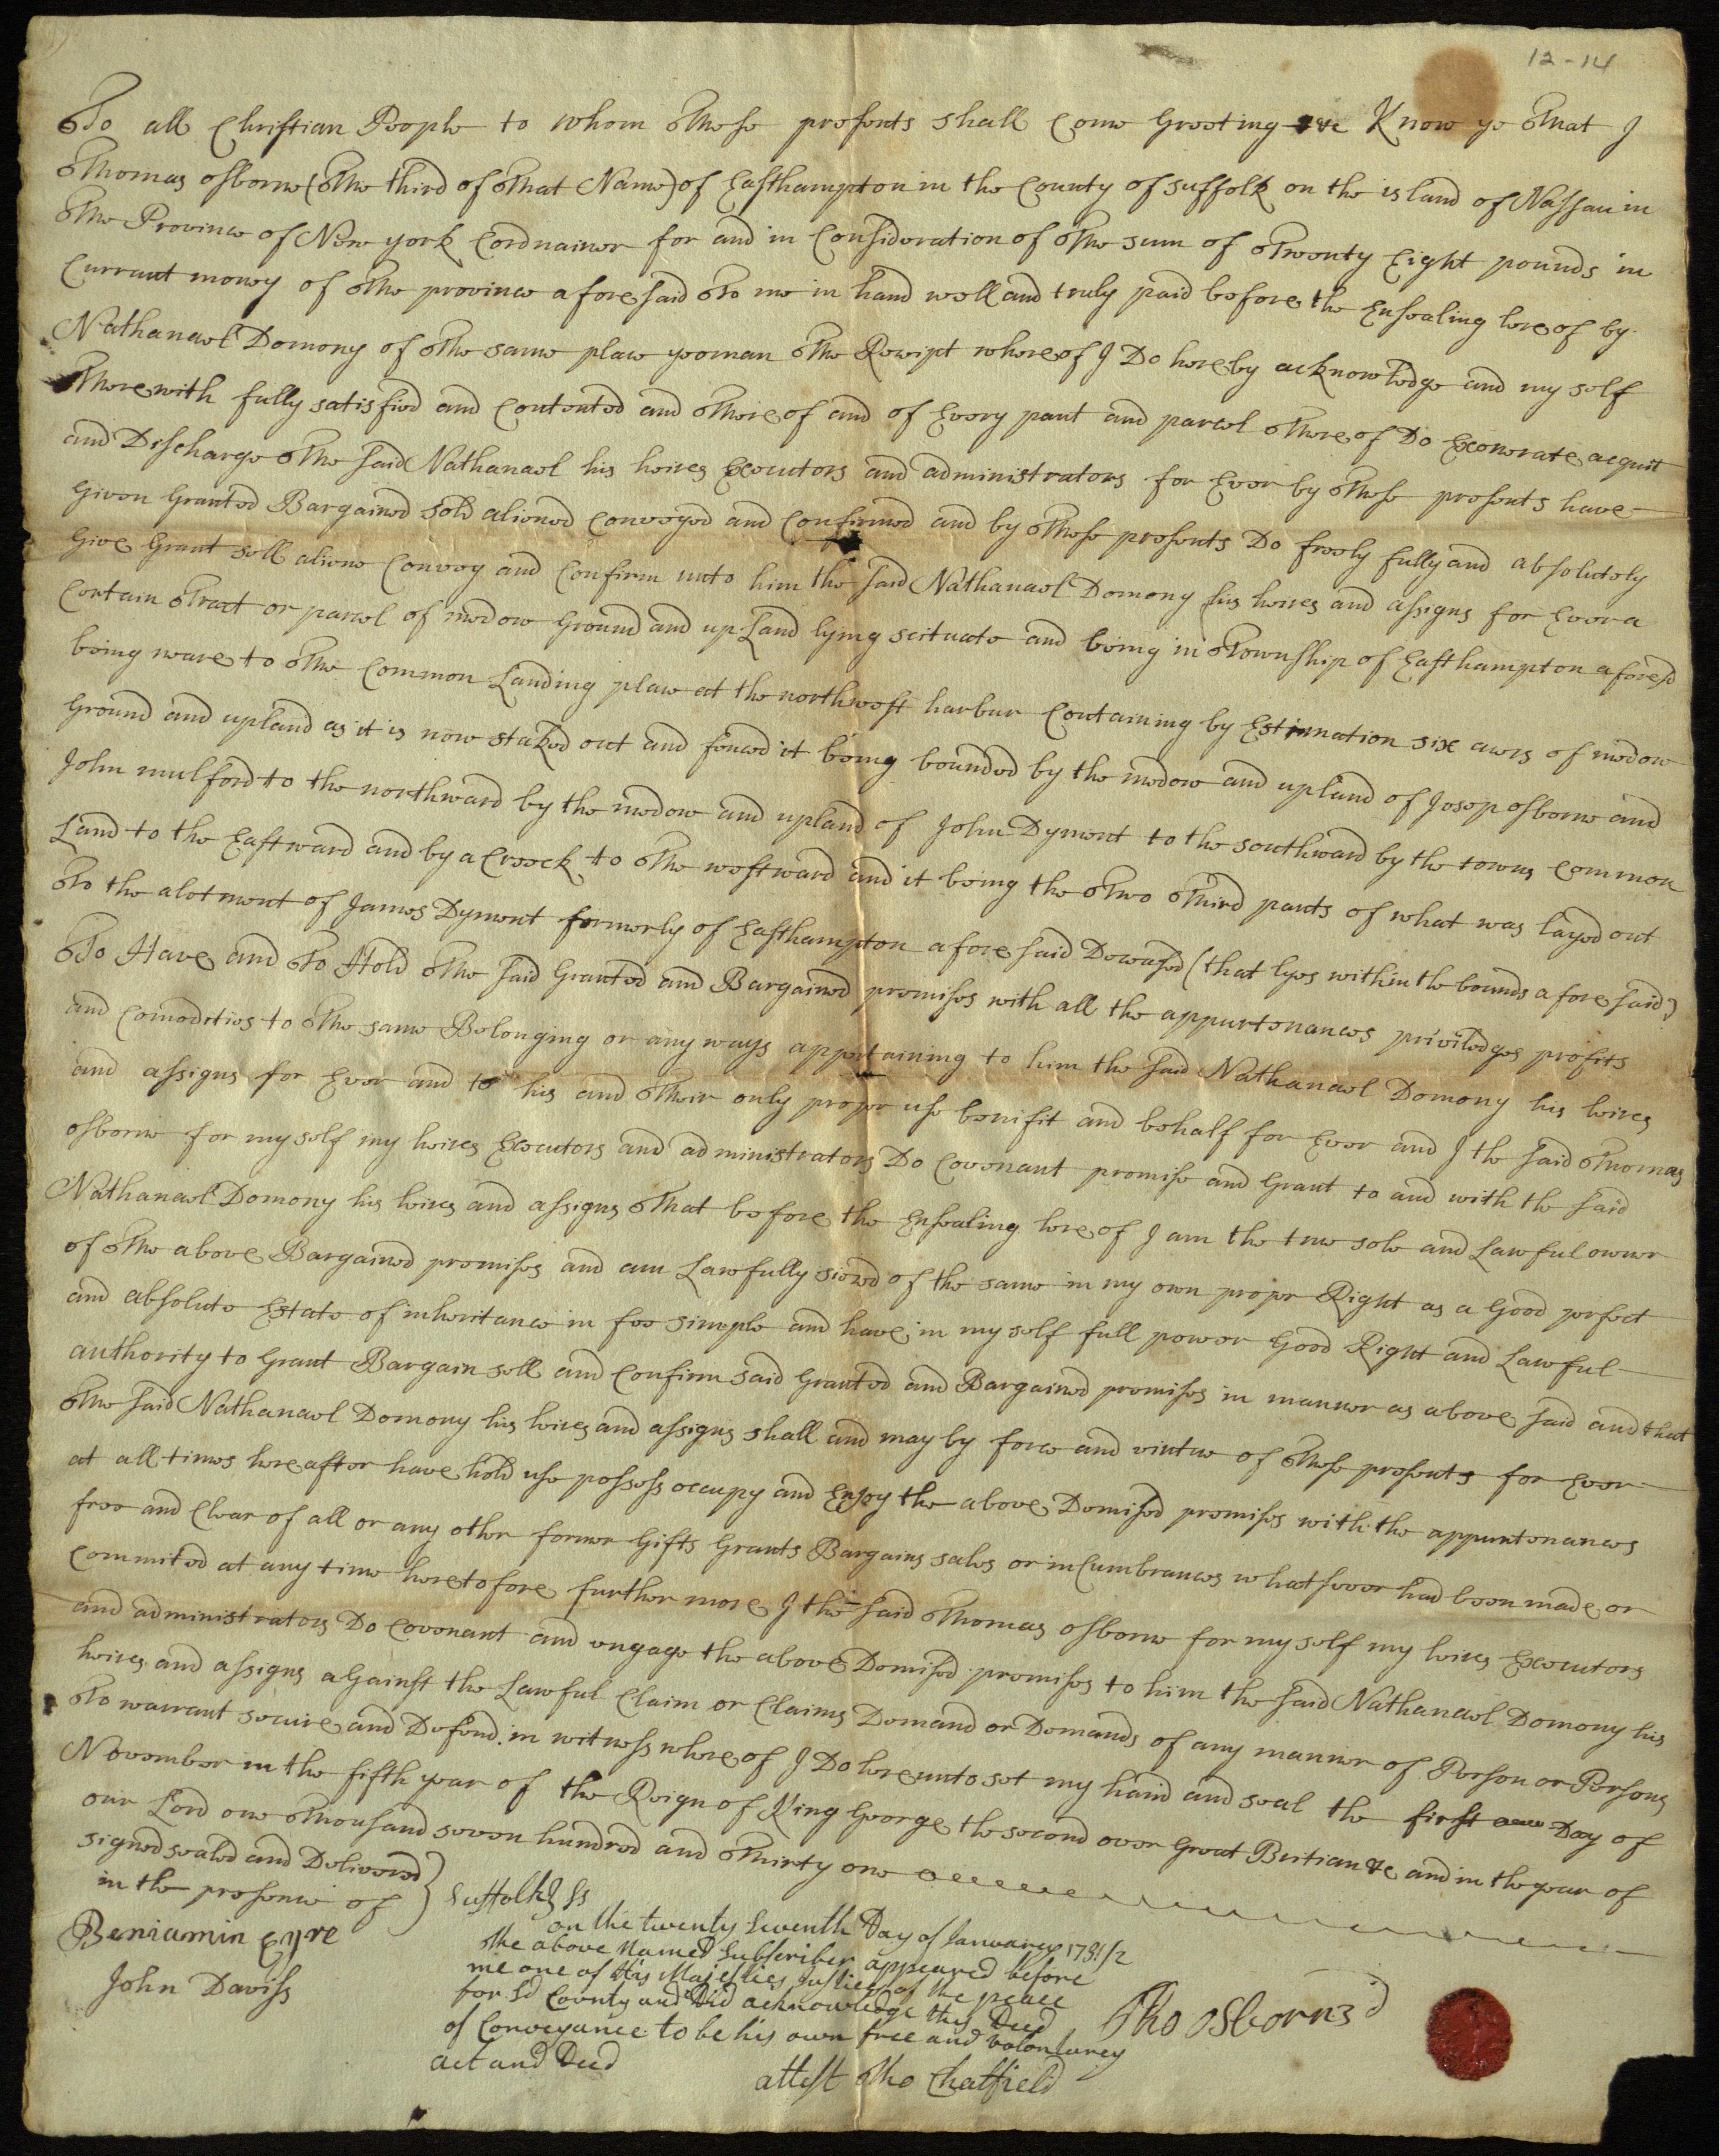 12-14
To all Christian People to whom These presents shall Come Greeting &c Know ye That I
Thomas osborne (The third of That Name) of Easthampton in the County of Suffolk on the island of Nassau in
The Province of New york Cordnainer for and in Consideration of The sum of Twenty Eight pounds in
Currant money of The province aforesaid To me in hand well and truly paid before the Ensealing hereof by
Nathanael Domony of The same place yeoman The Receipt whereof I Do hereby acknowledge and my self
Therewith fully satisfied and Contented and Thereof and of Every part and parcel Thereof Do Exonerate acquit
and Discharge The said Nathanael his heires Executors and administrators for Ever by These presents have
Given Granted Bargained sold aliened Conveyed and Confirmed and by These presents Do freely fully and absolutely
Give Grant sell aliene Convey and Confirm unto him the said Nathanael Domony his heires and assigns for Ever a
Certain Tract or parcel of medow Ground and up Land lying scituate and being in Township of Easthampton aforesd
being neare to The Common Landing place at the northwest harbur Containing by Estimation six acres of medow
Ground and upland as it is now staked out and fenced it being bounded by the medow and upland of Josep osborne and
John mulford to the northward by the medow and upland of John Dyment to the southward by the towns Common
Land to the Eastward and by a Creeck to The westward and it being the Two Third parts of what was layed out
To the alotment of James Dyment formerly of Easthampton aforesaid Deceased (that lyes within the bounds aforesaid)
To Have and To Hold The said Granted and Bargained premises with all the appurtenances priviledges profits
and Comodities to The same Belonging or any ways appertaining to him the said Nathanael Domony his heires
and assigns for Ever and to his and Their only proper use benifit and behalf for Ever and I the said Thomas
osborne for my self my heires Executors and administrators Do Covenant promise and Grant to and with the said
Nathanael Domony his heires and assigns That before the Ensealing hereof I am the true sole and Lawful owner
of The above Bargained premises and am Lawfully siezed of the same in my own proper Right as a Good perfect
and absolute Estate of inheritance in fee simple and have in my self full power Good Right and Lawful
authority to Grant Bargain sell and Confirm said Granted and Bargained premises in manner as above said and that
The said Nathanael Domony his heires and assigns shall and may by force and virtue of These presents for Ever
at all times hereafter have hold use possess occupy and Enjoy the above Demised premises with the appurtenances
free and Clear of all or any other former Gifts Grants Bargains sales or inCumbrances whatsover had been made or
Commited at any time heretofore further more I the said Thomas osborne for my self my heires Executors
and administrators Do Covenant and engage the above Demised premises to him the said Nathanael Domony his
heires and assigns aGainst the Lawful Claim or Claims Demand or Demands of any manner of Person or Persons
To warrant secure and Defend in witness whereof I Do hereunto set my hand and seal the first Day of
November in the fifth year of the Reign of King George the second over Great Britian &c and in the year of
our Lord one Thousand seven hundred and Thirty one
signed sealed and Delivered
in the presence of
Beniamin Eyre
John Daviss
Suffolk Ss
on the twenty seventh Day of January 1731/2
the above Named Subscriber appeared before
me one of His Majesties Justices of the peace
for sd County and Did acknowledge this Deed
of Conveyance to be his own free and volontarey
act and Deed
attest Tho Chatfield
Tho osborn 3d